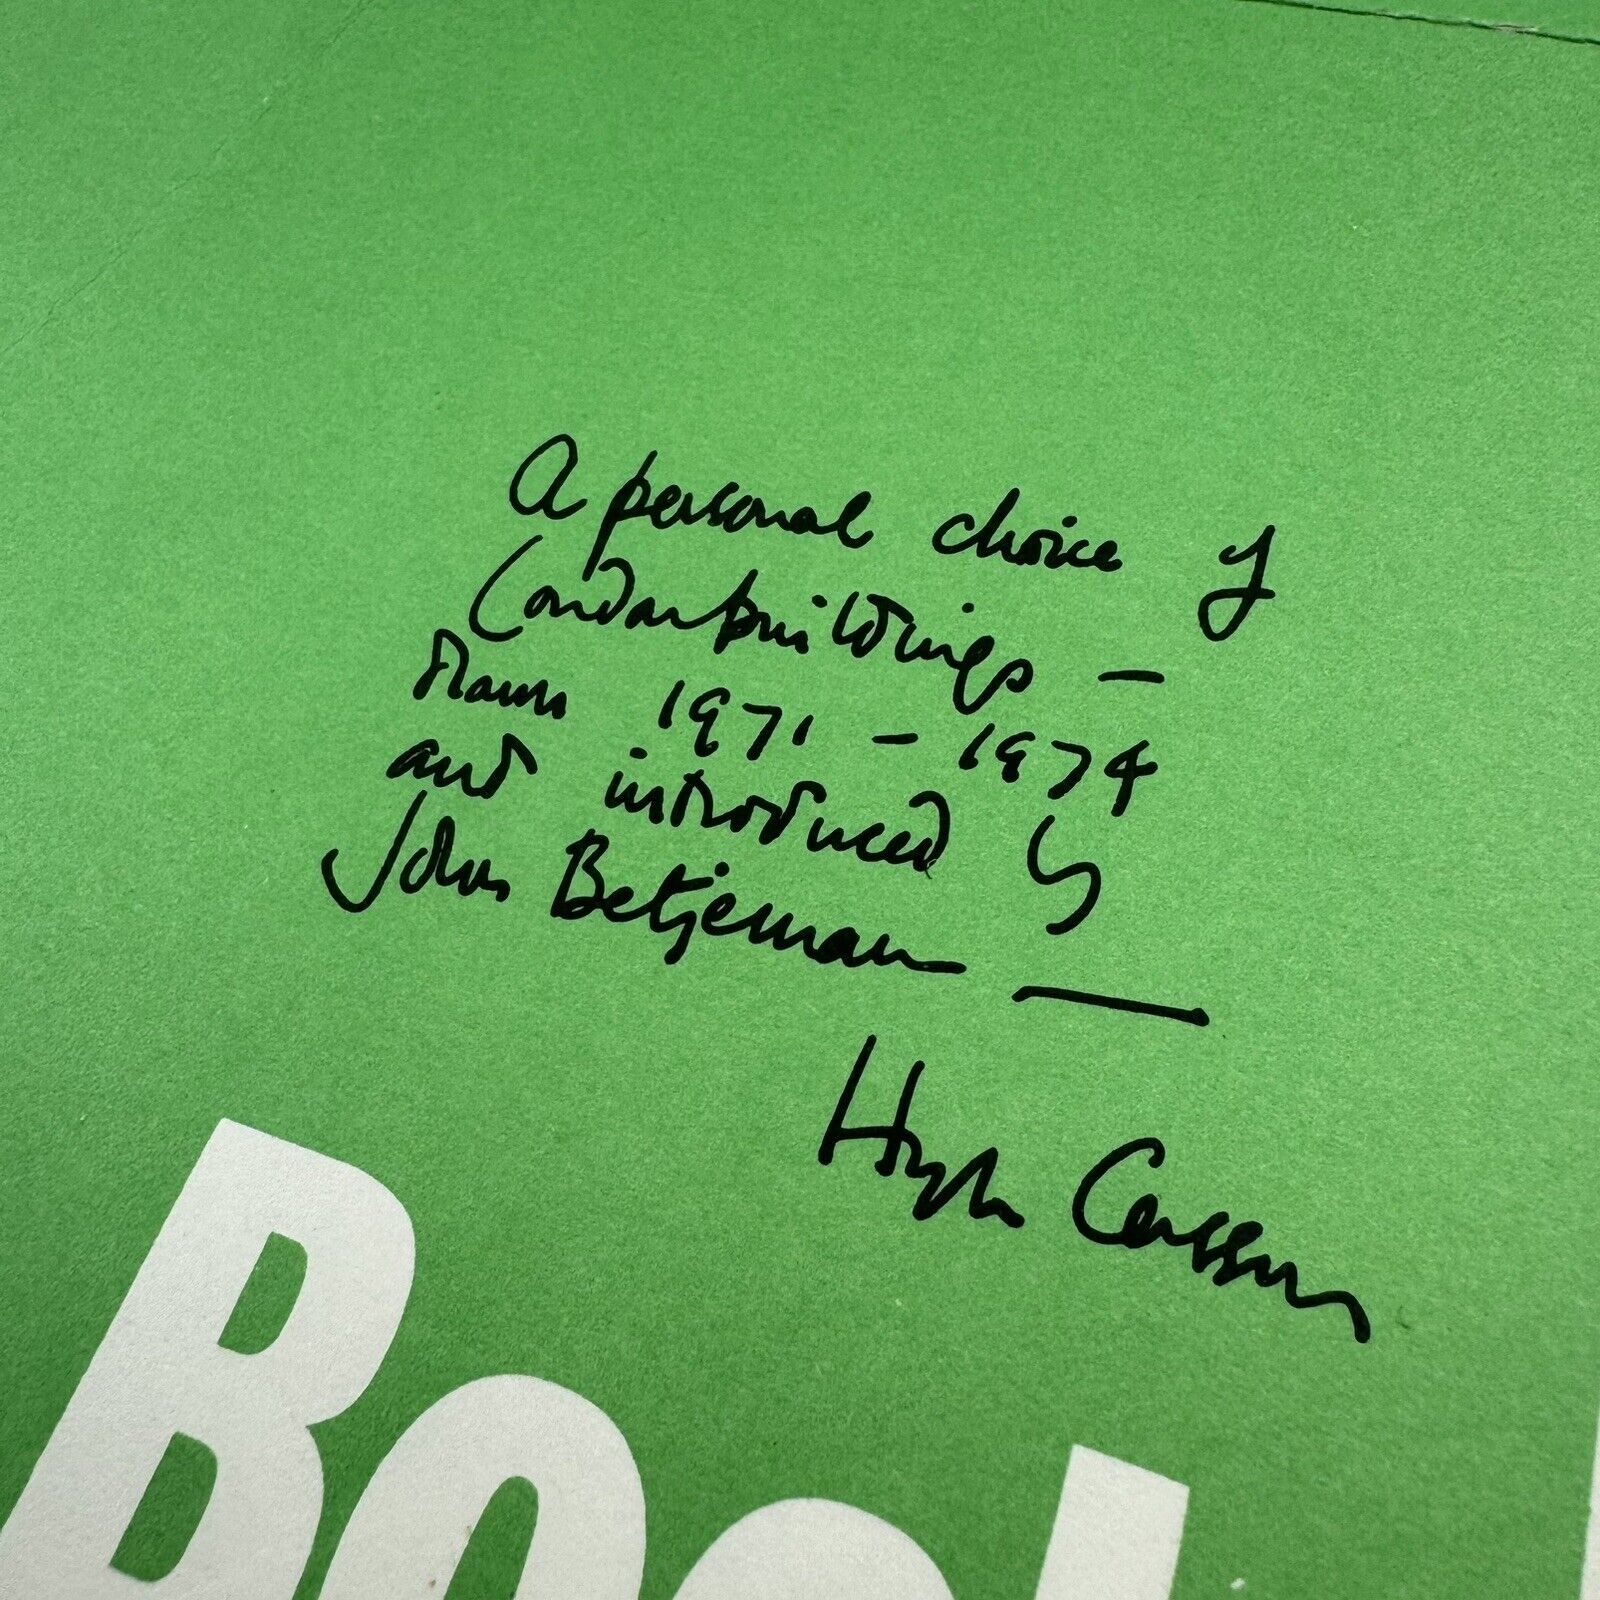 A personal choice of
London buildings —
drawn 1971 - 1974
and introduced by
John Betjeman —
Hugh Casson